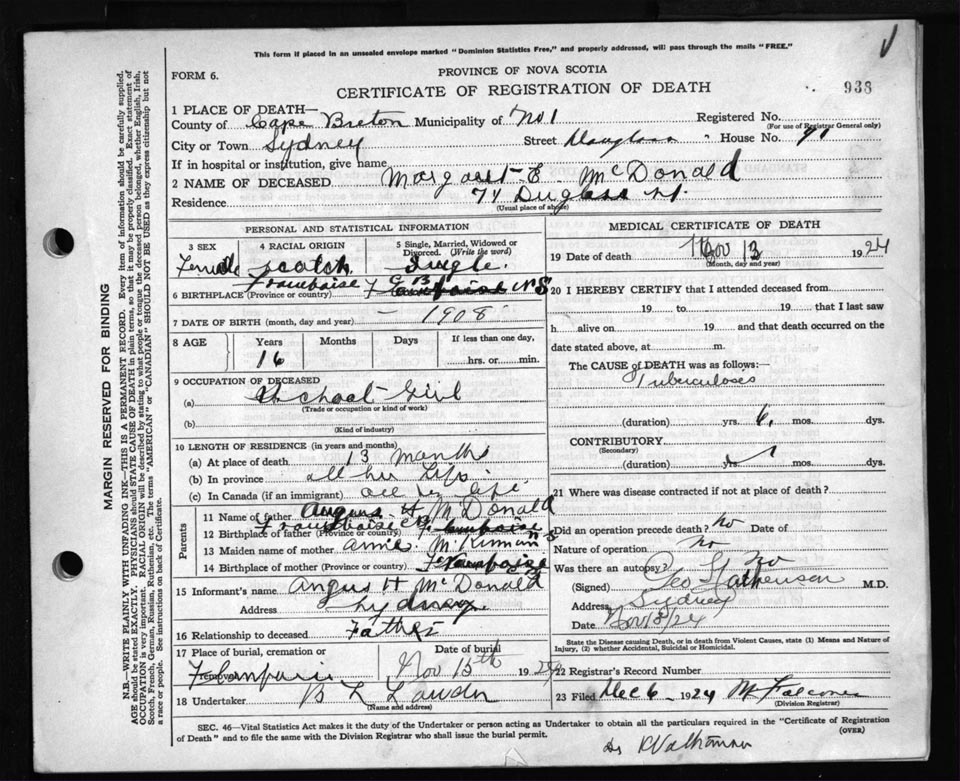 This form if placed in an unsealed envelope marked "Dominion Statistics Free," and properly addressed, will pass through the mails "FREE."
FORM 6.
PROVINCE OF NOVA SCOTIA
CERTIFICATE OF REGISTRATION OF DEATH
938
1 PLACE OF DEATH—
County of Cape Breton Municipality of No. 1 Registered No.
(For use of Registrar General only)
City or Town Sydney Street Douglass House No.
If in hospital or institution, give name
2 NAME OF DECEASED Margaret E McDonald
Residence 74 Duglass St.
(Usual place of abode)
PERSONAL AND STATISTICAL INFORMATION
3 SEX 4 RACIAL ORIGIN 5 Single, Married, Widowed or Divorced. (Write the word)
Female Scotch Single.
6 BIRTHPLACE (Province or country) Framboise C B N S
7 DATE OF BIRTH (month, day and year) – 1908
8 AGE Years Months Days If less than one day,
16 hrs. or min.
9 OCCUPATION OF DECEASED
(a) School Girl
(Trade or occupation or kind of work)
(b)
(Kind of industry)
10 LENGTH OF RESIDENCE (in years and months)
(a) At place of death 13 months
(b) In province all her life
(c) In Canada (if an immigrant) all her life
Parents
11 Name of father Angus H McDonald
12 Birthplace of father (Province or country) Framboise CB N S
13 Maiden name of mother Annie McKinnan
14 Birthplace of mother (Province or country) Framboise
15 Informant's name Angus H McDonald
Address Sydney
16 Relationship to deceased Father
17 Place of burial, cremation or Date of burial
Nov 15th 1924
18 Undertaker B L
(Name and address)
MEDICAL CERTIFICATE OF DEATH
19 Date of death Nov 13 1924
(Month, day and year)
20 I HEREBY CERTIFY that I attended deceased from
19 to 19 that I last saw
h alive on 19 and that death occurred on the
date stated above, at m.
The CAUSE of DEATH was as follows:
Tuberculosis
(duration) yrs. 6 mos. dys.
CONTRIBUTORY
(Secondary)
(duration) yrs. mos. dys.
21 Where was disease contracted if not at place of death?
Did an operation precede death? no Date of
Nature of operation no
Was there an autopsy? no
(Signed) Geo M.D.
Address Sydney
Date Nov 13/24
State the Disease causing Death, or in death from Violent Causes, state (1) Means and Nature of Injury, (2) whether Accidental, Suicidal or Homicidal.
22 Registrar's Record Number
23 Filed Dec 6 1924 M Falconer
(Division Registrar)
SEC. 46—Vital Statistics Act makes it the duty of the Undertaker or person acting as Undertaker to obtain all the particulars required in the "Certificate of Registration
of Death" and to file the same with the Division Registrar who shall issue the burial permit. (OVER)
MARGIN RESERVED FOR BINDING
N.B.—WRITE PLAINLY WITH UNFADING INK—THIS IS A PERMANENT RECORD. Every item of information should be carefully supplied.
AGE should be stated EXACTLY. PHYSICIANS should STATE CAUSE OF DEATH in plain terms, so that it may be properly classified. Exact statement of
OCCUPATION is very important. RACIAL ORIGIN will be described by stating to what people or tongue the deceased person belonged, whether English, Irish,
Scotch, French, German, Russian, Ruthenian, etc. The terms "AMERICAN" or "CANADIAN" SHOULD NOT BE USED as they express citizenship but not
a race or people. See instructions on back of Certificate.